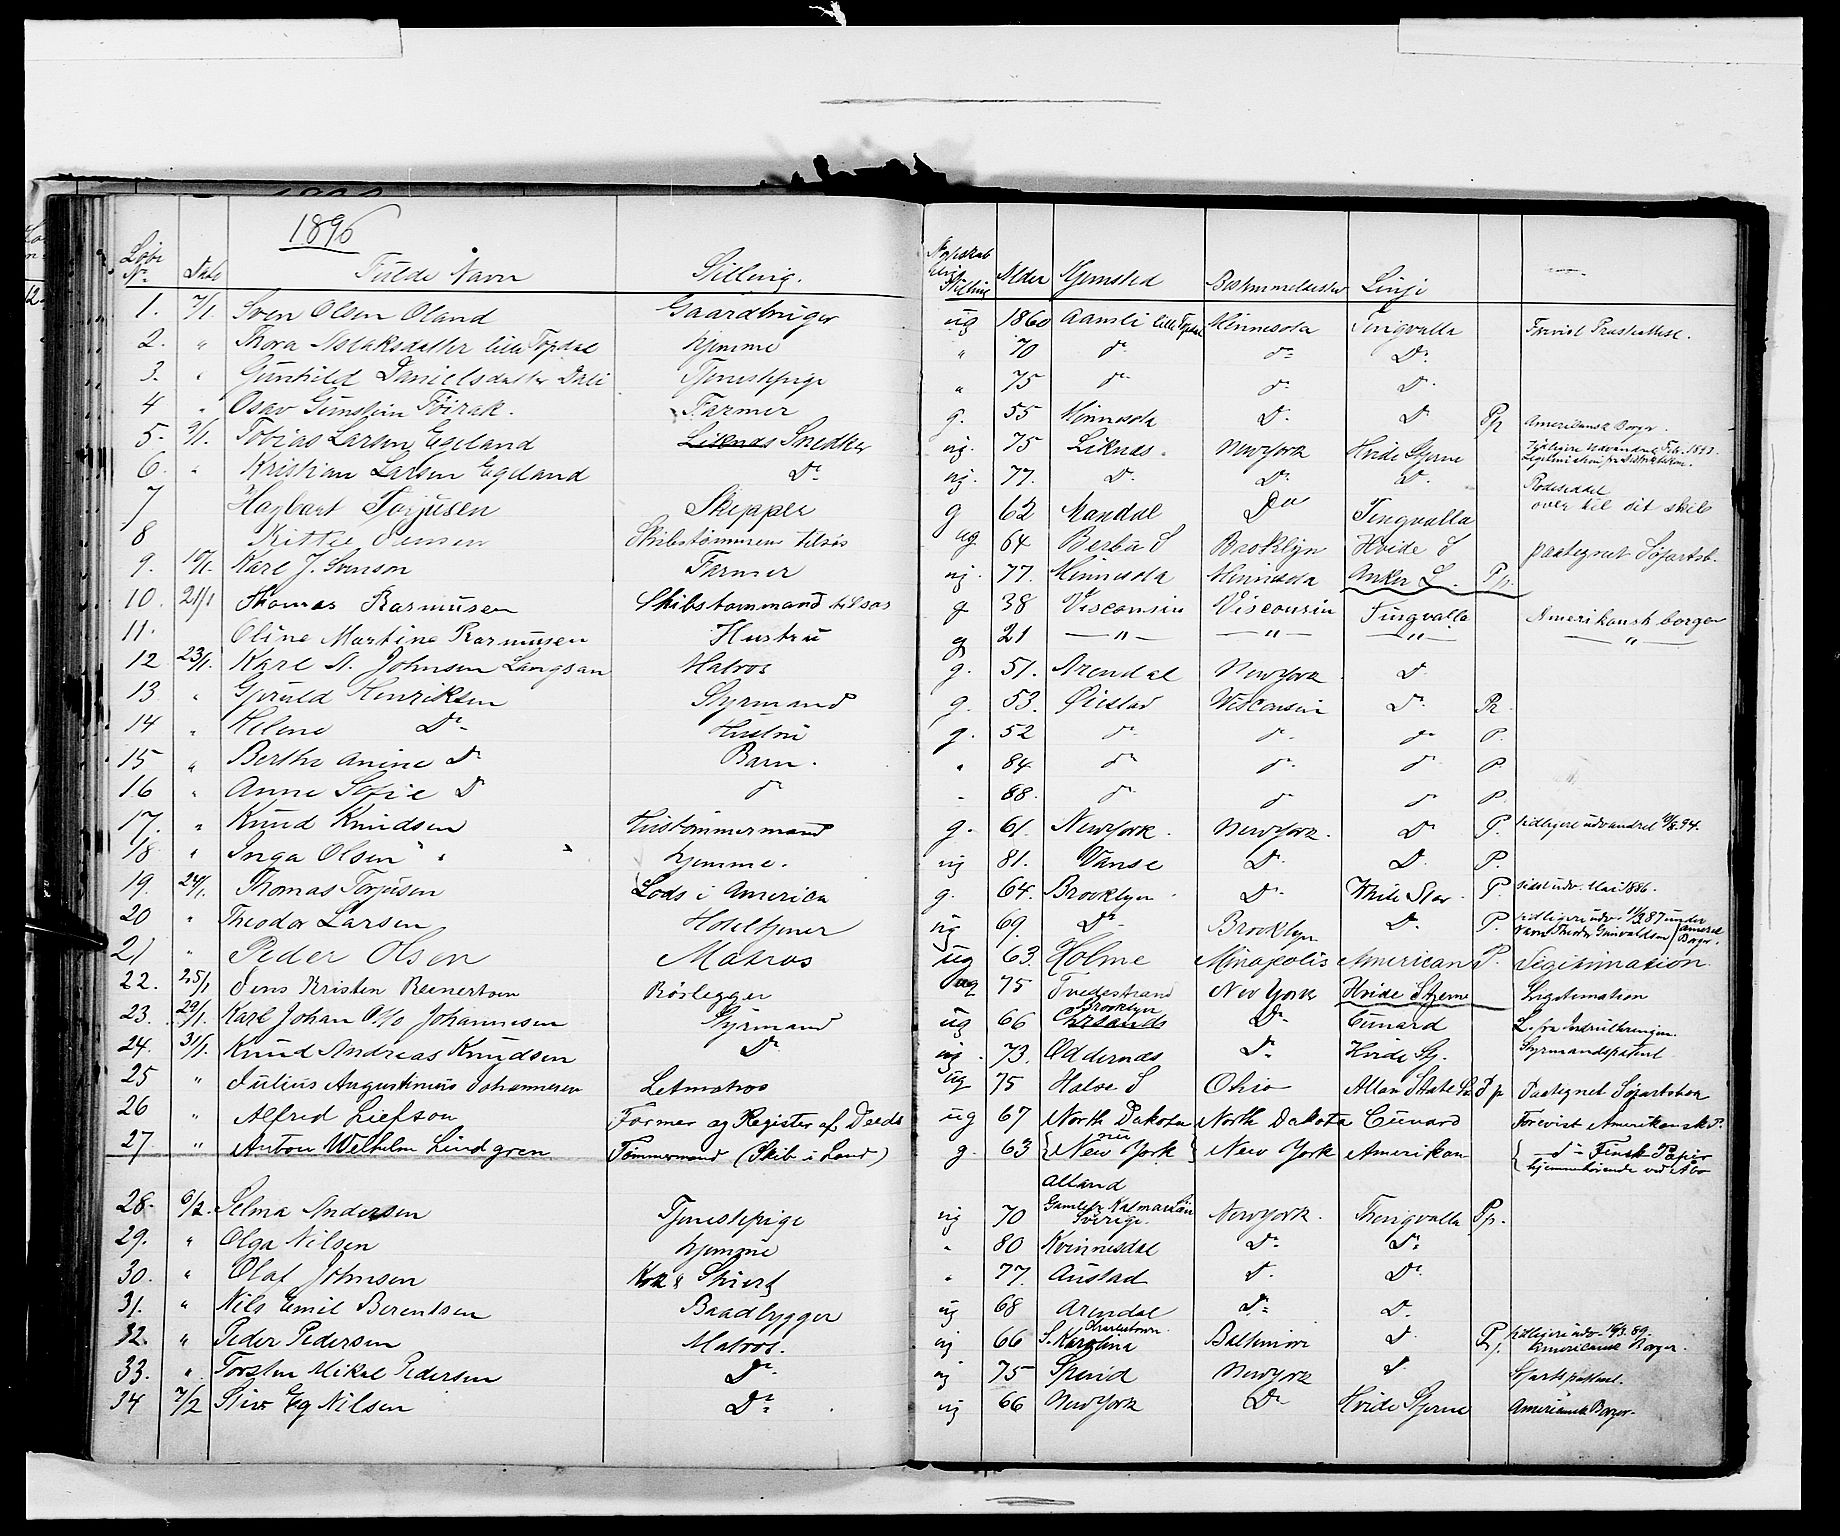 1896
Løbe Nr. Date Fulde Navn Stilling. Alder Hjemsted Bestemmelsessted Linje
1. 7/1. Sven Olsen Oland Gaardbruger ug 1860 Aamli lille Topdal Minnesota Tingvalla Forevist Prestattest.
2. " Thora Aslaksdatter lille Topdal hjemme " 70 do do Do
3. " Gunhild Danielsdatter Dale Tjenestepige " 75 do do Do
4 " Osav Gunstein Farmer g. 55 Minnesota Do Do Pp Amerikansk Borger.
5. 9/1. Tobias Larsen Egeland Snedker ug. 75 Liknes. New York Hvide Stjerne Tidligere udvandret Febr. 1893
6. " Kristian Larsen Egeland Do ug. 77. Do Do Do
7 Hagbart Torjusen Skipper g 62 Mandal Do Tingvalla Rodeseddel over til dit skib
8 Kittel Jensen Skibstømmerm tilsøs ug 64 Brooklyn Hvide S paategnet Søfartsb.
9. 10/1. Karl J. Svenson Farmer ug. 77. Minnesota Minnesota Anker L. Pp.
10. 21/1 Thomas Rasmusen Skibstømmermand tilsøs g 38 Visconsin Visconsin Tingvalla Amerikansk borger
11. Oline Martine Rasmusen Hustru g 21 — " — — " — — " — — " —
12 23/1. Karl A. Johnsen Langsan Matros g. 51. Arendal New York Do
13 " Gjeruld Henriksen Styrmand g. 53. Øiestad Wisconsin Do P.
14 " Helene Do Hustru g. 52 do do do P.
15 " Berthe Anine Do Barn. " 84. do do do P
16 " Anne Sofie Do do " 88. do do do P.
17. " Knud Knudsen Hustømmermand g. 61. New York. New York. Do P. tidligere udvandret 9/8.94.
18 " Inga Olsen hjemme. ug 81. Vanse Do Do P.
19. 24/1. Thomas Torjusen Lods i America g. 64. Brooklyn Do White Star P. sidst udv. Mai 1886.
20 " Theodor Larsen Hoteltjener ug 69. Do Brooklyn Do P. tidligere udv. 87 under Navn Theodor Gunvaldsen
21 " Peder Olsen Matros ug 63. Holme Minapolis American P. Legitimation.
22. 25/1 Jens Kristen Reenertsen Rørlegger ug 75 Tvedestrand New York Hvide Stjerne Legitimation
23. 29/1. Karl Johan Johannesen Styrmand ug 66 Brooklyn Do Cunard
24. 31/1. Knud Andreas Knudsen Do ug. 73. Oddernæs Do Hvide Stj. Styrmandspatent.
25 " Julius Augustinius Johannesen Letmatros ug 75 Halse S Ohio Allan State Paategnet Søfartsbog
26 " Alfred Liefson Farmer og Register af Deeds ug 67 North Dakota North Dakota Cunard Forevist Amerikansk P.
27. " Anton Welhelm Lindgren Tømmermand (Skib i Land) g. 63 New York New York Amerikan — do — Finsk Papir hjemmehørende ved Åbo
Alland
28. 6/2. Selma Andersen Tjenestepige ug 70 Kalmarlän Sverige. New York. Thingvalla Pp.
29. " Olga Nilsen hjemme " 80 Kvinnesdal Do Do
30. " Olaf Johnsen " 77. Austad Do Do
31. " Nils Emil Berentsen Baadbygger ug 68 Arendal Do Do
32. " Peder Pedersen Matros. ug 66 Charlestown S. Karolina Baltimore Do P. tidligere udv. 89. Amerikansk Borger.
33. " Torsten Mikal Pedersen Do ug 75 Spind New York Do
34 7/2 Nilsen Do ug 66 New York Do Hvide Stjerne Amerikansk Borger.